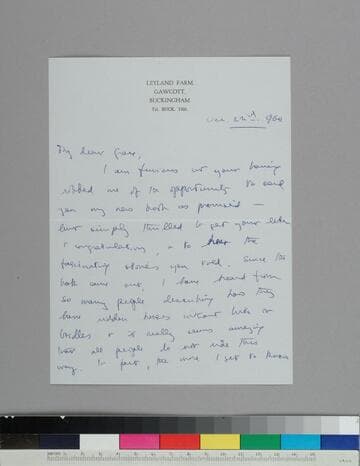 LEYLAND FARM,
GAWCOTT,
BUCKINGHAM
Tel. BUCK.
22nd
My dear
I am furious at your having
robbed me of the opportunity to send
you my new book as promised —
but simply thrilled to get your letter
of congratulations, & to hear the
fascinating stories you told. Since the
book came out, I have heard from
so many people describing how they
have ridden horses without bits or
bridles & it really seems amazing
how all people do not ride this
way. In fact, the more I get to know